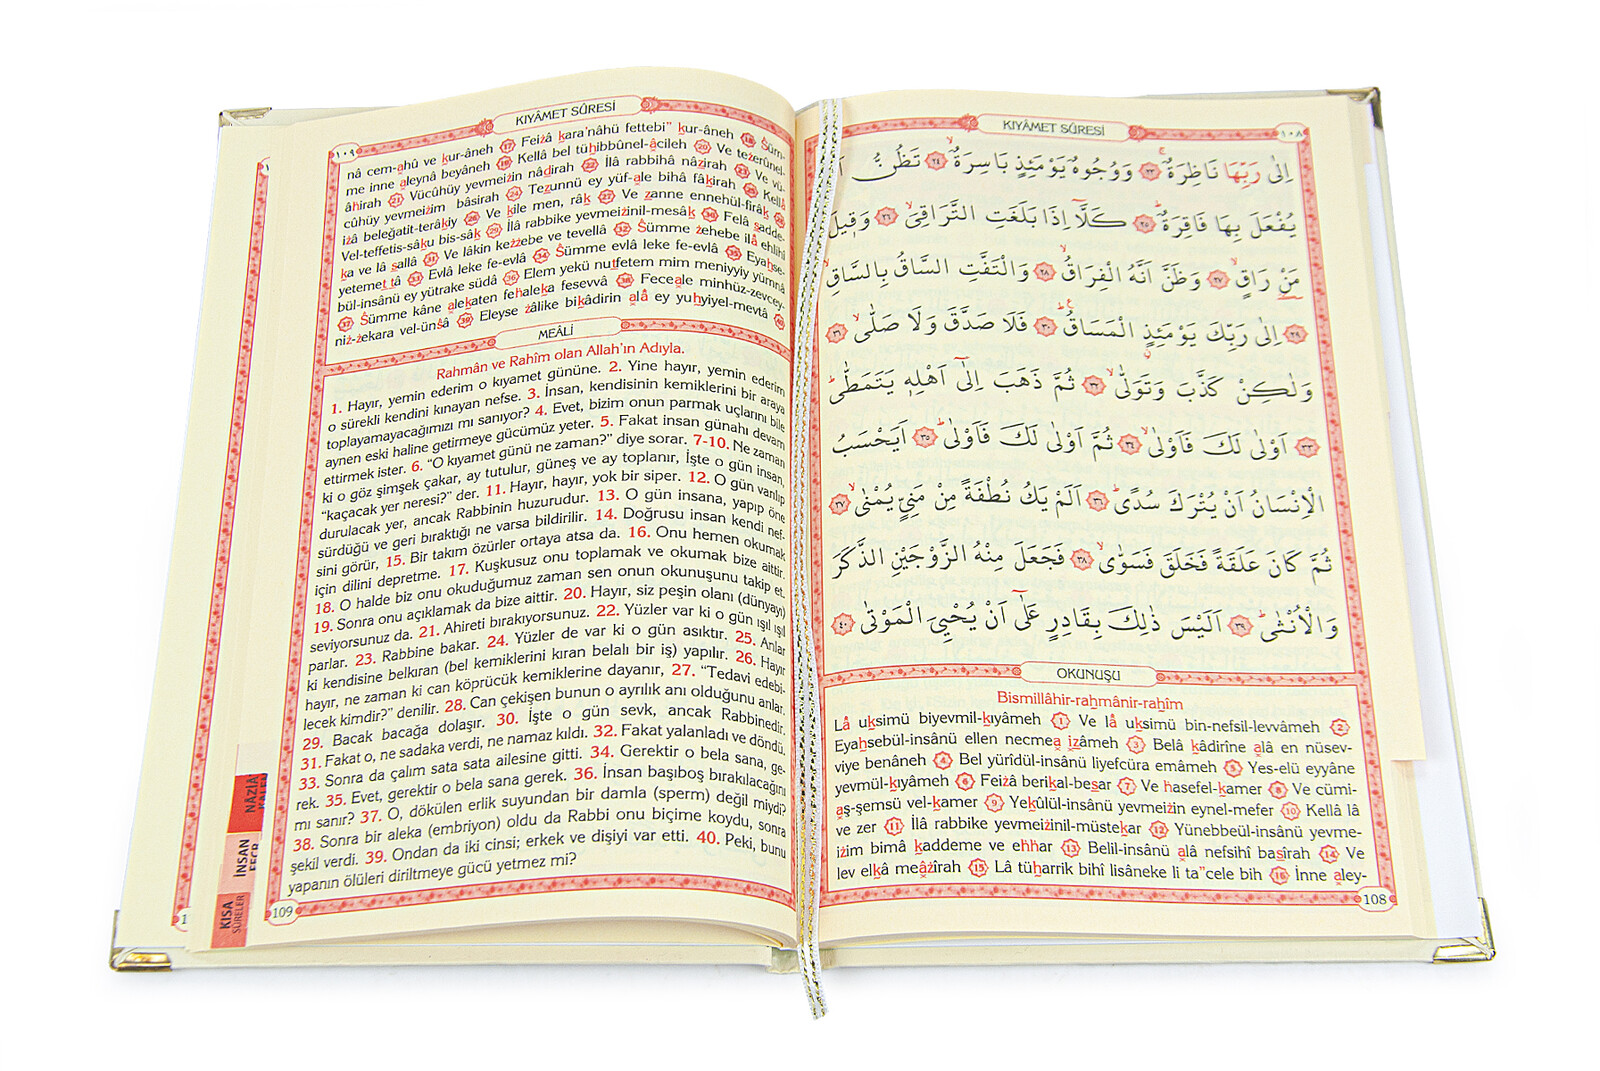 KIYÂMET SÛRESİ
١٠٨
اِلٰى رَبِّهَا نَاظِرَةٌۚ ﴿٢٣﴾ وَوُجُوهٌ يَوْمَئِذٍ بَاسِرَةٌۙ ﴿٢٤﴾ تَظُنُّ
يُفْعَلَ بِهَا فَاقِرَةٌۜ ﴿٢٥﴾ كَلَّٓا اِذَا بَلَغَتِ التَّرَاقِيَۙ ﴿٢٦﴾ وَق۪يلَ
مَنْ رَاقٍۙ ﴿٢٧﴾ وَظَنَّ اَنَّهُ الْفِرَاقُۙ ﴿٢٨﴾ وَالْتَفَّتِ السَّاقُ بِالسَّاقِۙ
﴿٢٩﴾ اِلٰى رَبِّكَ يَوْمَئِذٍ الْمَسَاقُۜ ﴿٣٠﴾ فَلَا صَدَّقَ وَلَا صَلّٰىۙ ﴿٣١﴾
وَلٰكِنْ كَذَّبَ وَتَوَلّٰىۙ ﴿٣٢﴾ ثُمَّ ذَهَبَ اِلٰٓى اَهْلِه۪ يَتَمَطّٰىۜ
﴿٣٣﴾ اَوْلٰى لَكَ فَاَوْلٰىۙ ﴿٣٤﴾ ثُمَّ اَوْلٰى لَكَ فَاَوْلٰىۜ ﴿٣٥﴾ اَيَحْسَبُ
الْاِنْسَانُ اَنْ يُتْرَكَ سُدًىۜ ﴿٣٦﴾ اَلَمْ يَكُ نُطْفَةً مِنْ مَنِيٍّ يُمْنٰىۙ ﴿٣٧﴾
ثُمَّ كَانَ عَلَقَةً فَخَلَقَ فَسَوّٰىۙ ﴿٣٨﴾ فَجَعَلَ مِنْهُ الزَّوْجَيْنِ الذَّكَرَ
وَالْاُنْثٰىۜ ﴿٣٩﴾ اَلَيْسَ ذٰلِكَ بِقَادِرٍ عَلٰٓى اَنْ يُحْيِيَ الْمَوْتٰى ﴿٤٠﴾
OKUNUŞU
Bismillâhir-rahmânir-rahîm
Lâ uksimü biyevmil-kıyâmeh 1 Ve lâ uksimü bin-nefsil-levvâmeh 2
Eyahsebül-insânü ellen necmea ızâmeh 3 Belâ kâdirîne alâ en nüsev-
viye benâneh 4 Bel yürîdül-insânü liyefcüra emâmeh 5 Yes-elü eyyâne
yevmül-kıyâmeh 6 Feizâ berikal-besar 7 Ve hasefel-kamer 8 Ve cümi-
aş-şemsü vel-kamer 9 Yekûlül-insânü yevmeizin eynel-mefer 10 Kellâ lâ
ve zer 11 İlâ rabbike yevmeizinil-müstekar 12 Yünebbeül-insânü yevme-
izim bimâ kaddeme ve ehhar 13 Belil-insânü alâ nefsihî basîrah 14 Ve
lev elkâ meâzîrah 15 Lâ tüharrik bihî lisâneke li ta"cele bih 16 İnne aley-
108
KIYÂMET SÛRESİ
١٠٩
nâ cem-ahû ve kur-âneh 17 Feizâ kara'nâhü fettebi" kur-âneh 18 Süm-
me inne aleynâ beyâneh 19 Kellâ bel tühibbûnel-âcileh 20 Ve tezerûnel-
âhirah 21 Vücûhüy yevmeizin nâdirah 22 İlâ rabbihâ nâzirah 23 Ve vü-
cûhüy yevmeizim bâsirah 24 Tezunnü ey yüf-ale bihâ fâkirah 25 Kellâ
izâ beleğatit-terâkiy 26 Ve kîle men, râk 27 Ve zanne ennehül-firâk 28
Vel-teffetis-sâku bis-sâk 29 İlâ rabbike yevmeizinil-mesâk 30 Felâ sadde-
ka ve lâ sallâ 31 Ve lâkin kezzebe ve tevellâ 32 Sümme zehebe ilâ ehlihî
yetemettâ 33 Evlâ leke fe-evlâ 34 Sümme evlâ leke fe-evlâ 35 Eyahse-
bül-insânü ey yütrake südâ 36 Elem yekü nutfetem mim meniyyiy yümnâ
37 Sümme kâne alekaten fehaleka fesevvâ 38 Feceale minhüz-zevcey-
niz-zekara vel-ünsâ 39 Eleyse zâlike bikâdirin alâ ey yuhyiyel-mevtâ 40
MEÂLİ
Rahmân ve Rahîm olan Allah'ın Adıyla.
1. Hayır, yemin ederim o kıyamet gününe. 2. Yine hayır, yemin ederim
o sürekli kendini kınayan nefse. 3. İnsan, kendisinin kemiklerini bir araya
toplayamayacağımızı mı sanıyor? 4. Evet, bizim onun parmak uçlarını bile
aynen eski haline getirmeye gücümüz yeter. 5. Fakat insan günahı devam
ettirmek ister. 6. "O kıyamet günü ne zaman?" diye sorar. 7-10. Ne zaman
ki o göz şimşek çakar, ay tutulur, güneş ve ay toplanır, İşte o gün insan,
"kaçacak yer neresi?" der. 11. Hayır, hayır, yok bir siper. 12. O gün varılıp
durulacak yer, ancak Rabbinin huzurudur. 13. O gün insana, yapıp öne
sürdüğü ve geri bıraktığı ne varsa bildirilir. 14. Doğrusu insan kendi nef-
sini görür, 15. Bir takım özürler ortaya atsa da. 16. Onu hemen okumak
için dilini depretme. 17. Kuşkusuz onu toplamak ve okumak bize aittir.
18. O halde biz onu okuduğumuz zaman sen onun okunuşunu takip et.
19. Sonra onu açıklamak da bize aittir. 20. Hayır, siz peşin olanı (dünyayı)
seviyorsunuz da. 21. Ahireti bırakıyorsunuz. 22. Yüzler var ki o gün ışıl ışıl
parlar. 23. Rabbine bakar. 24. Yüzler de var ki o gün asıktır. 25. Anlar
ki kendisine belkıran (bel kemiklerini kıran belalı bir iş) yapılır. 26. Hayır
hayır, ne zaman ki can köprücük kemiklerine dayanır, 27. "Tedavi edebi-
lecek kimdir?" denilir. 28. Can çekişen bunun o ayrılık anı olduğunu anlar.
29. Bacak bacağa dolaşır. 30. İşte o gün sevk, ancak Rabbinedir.
31. Fakat o, ne sadaka verdi, ne namaz kıldı. 32. Fakat yalanladı ve döndü,
33. Sonra da çalım sata sata ailesine gitti. 34. Gerektir o bela sana, ge-
rek. 35. Evet, gerektir o bela sana gerek. 36. İnsan başıboş bırakılacağını
mı sanır? 37. O, dökülen erlik suyundan bir damla (sperm) değil miydi?
38. Sonra bir aleka (embriyon) oldu da Rabbi onu biçime koydu, sonra
şekil verdi. 39. Ondan da iki cinsi; erkek ve dişiyi var etti. 40. Peki, bunu
yapanın ölüleri diriltmeye gücü yetmez mi?
109
İNSAN
KISA
SÛRELER